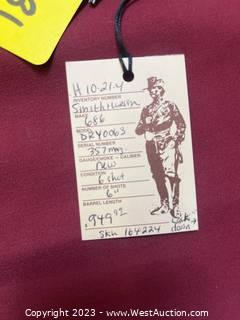 18
H 10-21-4
INVENTORY NUMBER
Smith+Wesson
MAKE
686
MODEL
DRY0063
SERIAL NUMBER
357 mag.
GAUGE/CHOKE – CALIBER
New
CONDITION
6 shot
NUMBER OF SHOTS
6"
BARREL LENGTH
$949.92
SKU 164224
down
© 2023 - www.WestAuction.com